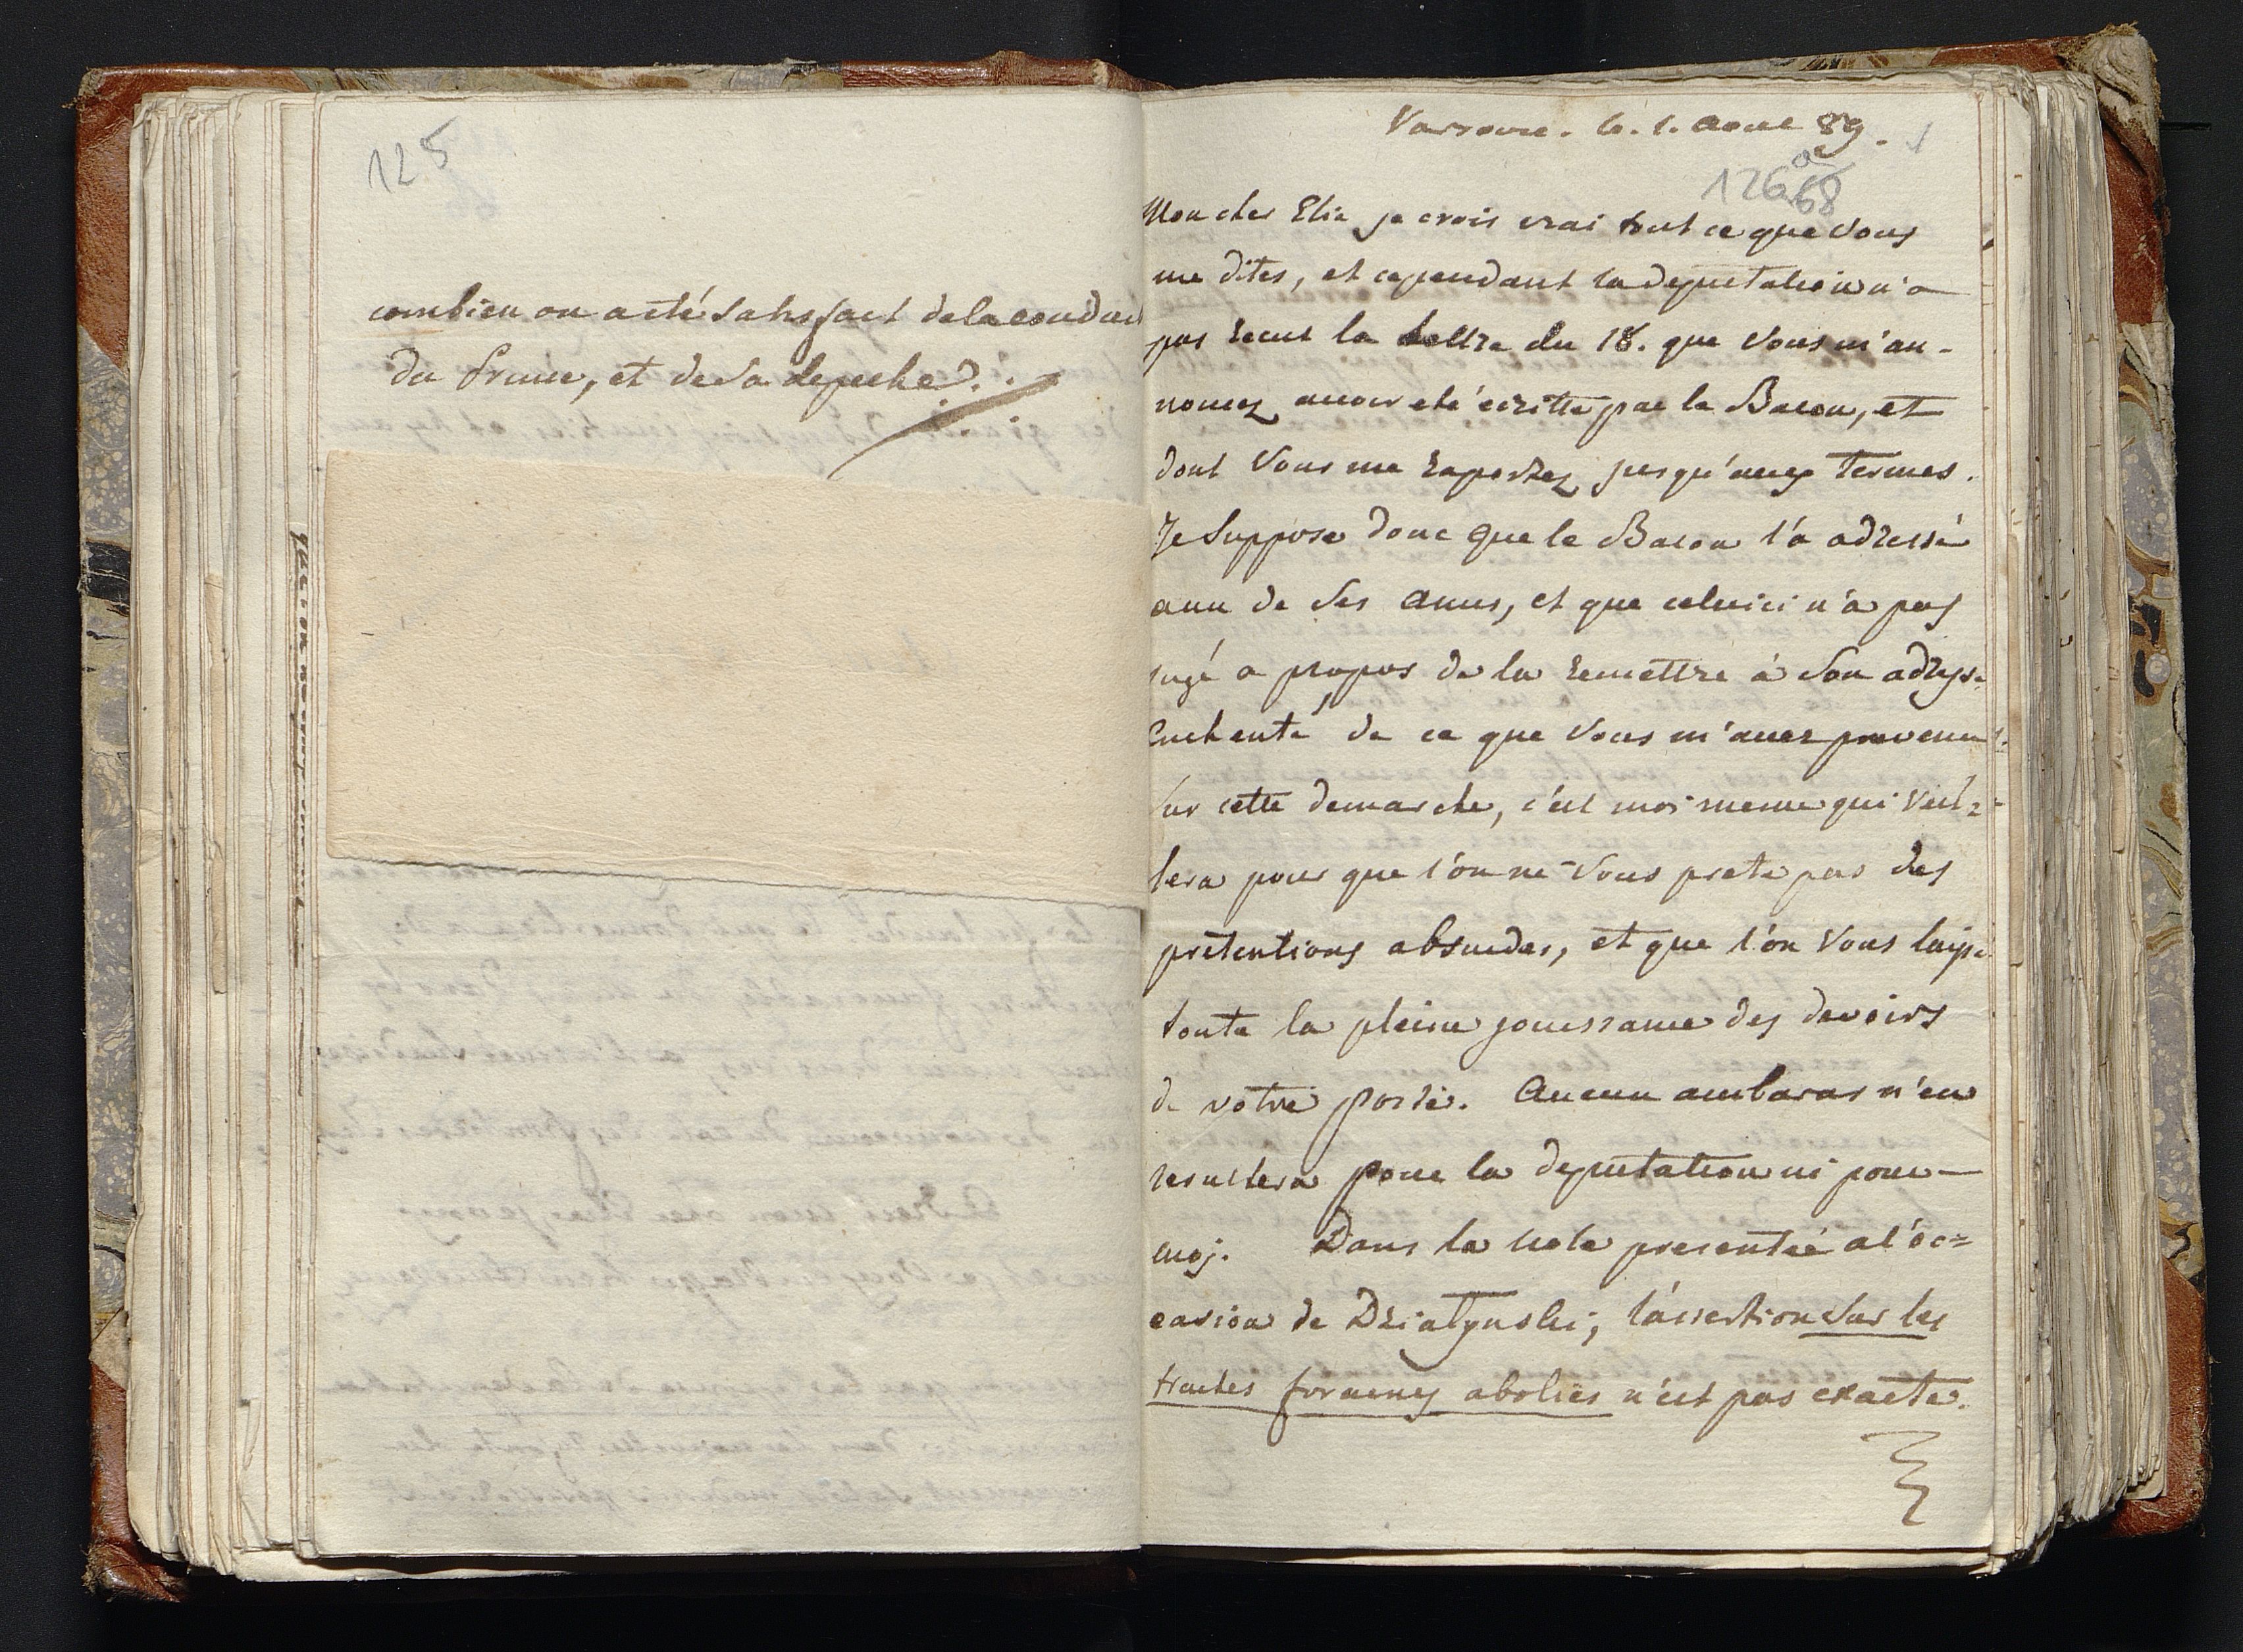 125
combien on a eté satisfait de la conduit
du Prince, et de sa depeche.
Varsovie. le. 1. Aout 89.
126 68
Mon cher Elie je crois vrai tout ce que Vous
me dites, et cependant la deputation n'a
pas recut la lettre du 18. que Vous m'an-
noncez avoir eté écritte par le Baron, et
dont Vous me raportez jusqu'aux termes.
Je suppose donc que le Baron l'a adressé
aun de ses amis, et que celuici n'a pas
jugé a propos de la remettre à son adresse
Enchenté de ce que Vous m'avez prevenu
sur cette demarche, c'est moi meme qui veil-
lera pour que l'on ne Vous prete pas des
pretentions absurdes, et que l'on Vous laisse
toute la pleine jouissance des devoirs
de votre poste. Aucun ambaras n'en
resultera pour la deputation ni pour
moj. Dans la note presentée a l'oc=
casion de Dzialynski, l'assertion sur les
traités foraeny abolies n'est pas exacte.